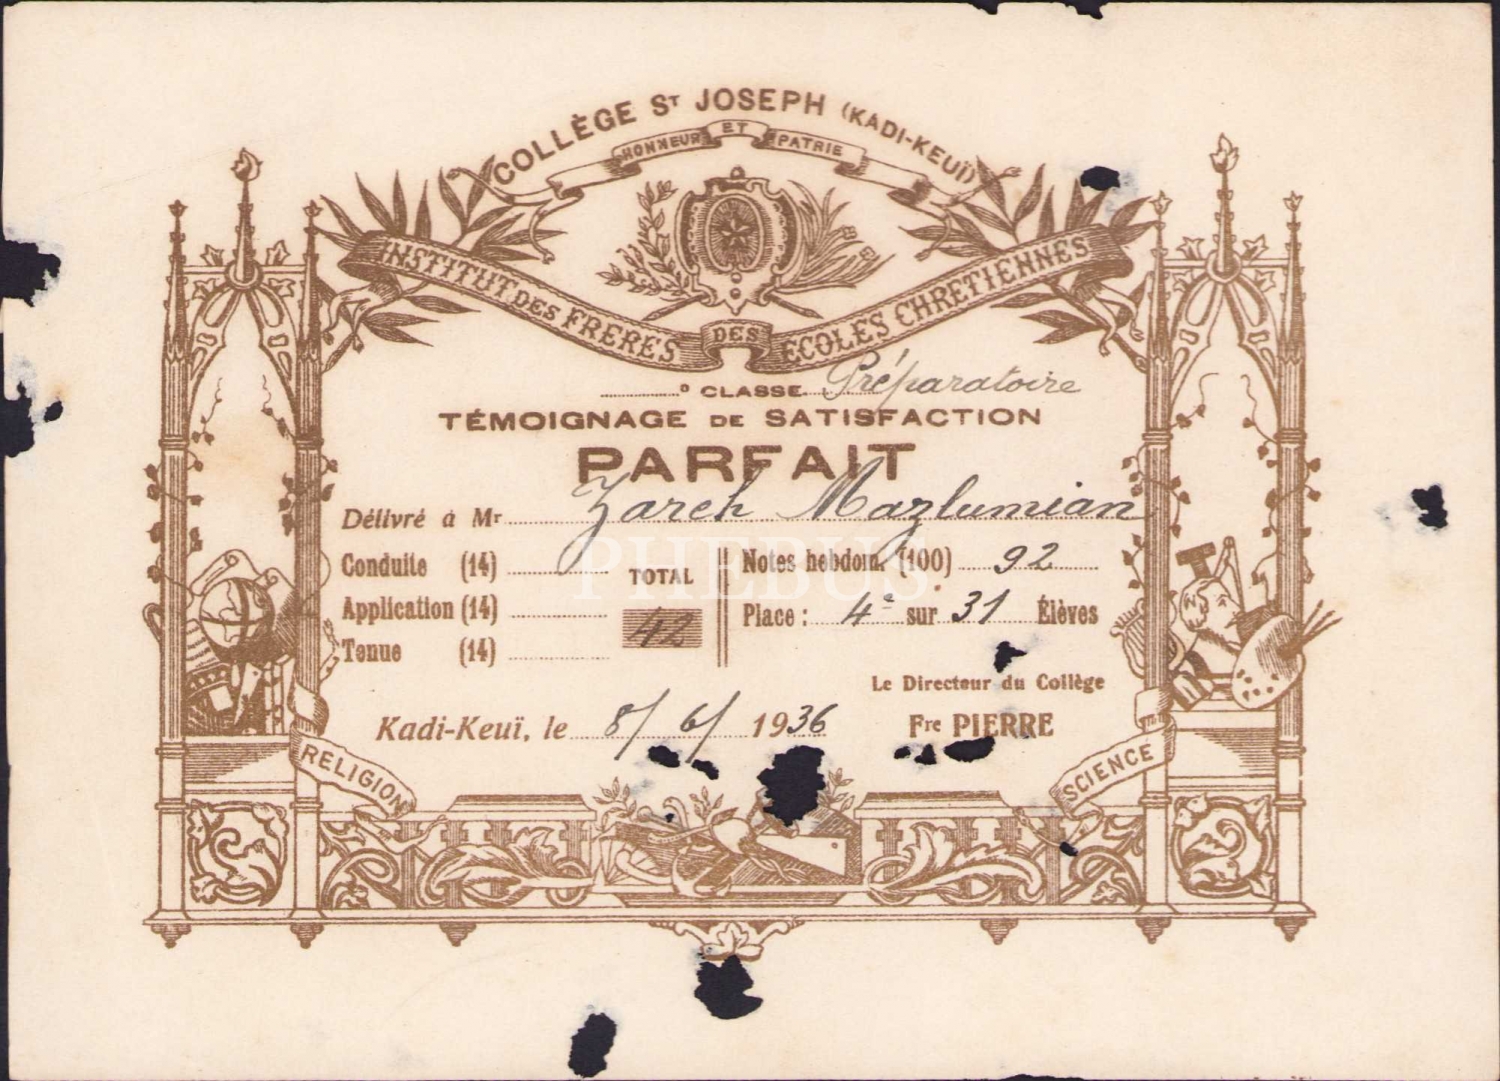 COLLÈGE ST JOSEPH (KADI-KEUÏ)
HONNEUR ET PATRIE
INSTITUT DES FRERES DES ECOLES CHRETIENNES
° CLASSE : Préparatoire
TÉMOIGNAGE DE SATISFACTION
PARFAIT
Délivré à Mr Zareh Mazlumian
Conduite (14)
Application (14)
Tenue (14)
TOTAL
42
Notes hebdom. (100) 92
Place : 4e sur 31 Élèves
Le Directeur du Collège
Fre PIERRE
Kadi-Keuï, le 8/ 6/ 1936
RELIGION
SCIENCE
PHEBUS